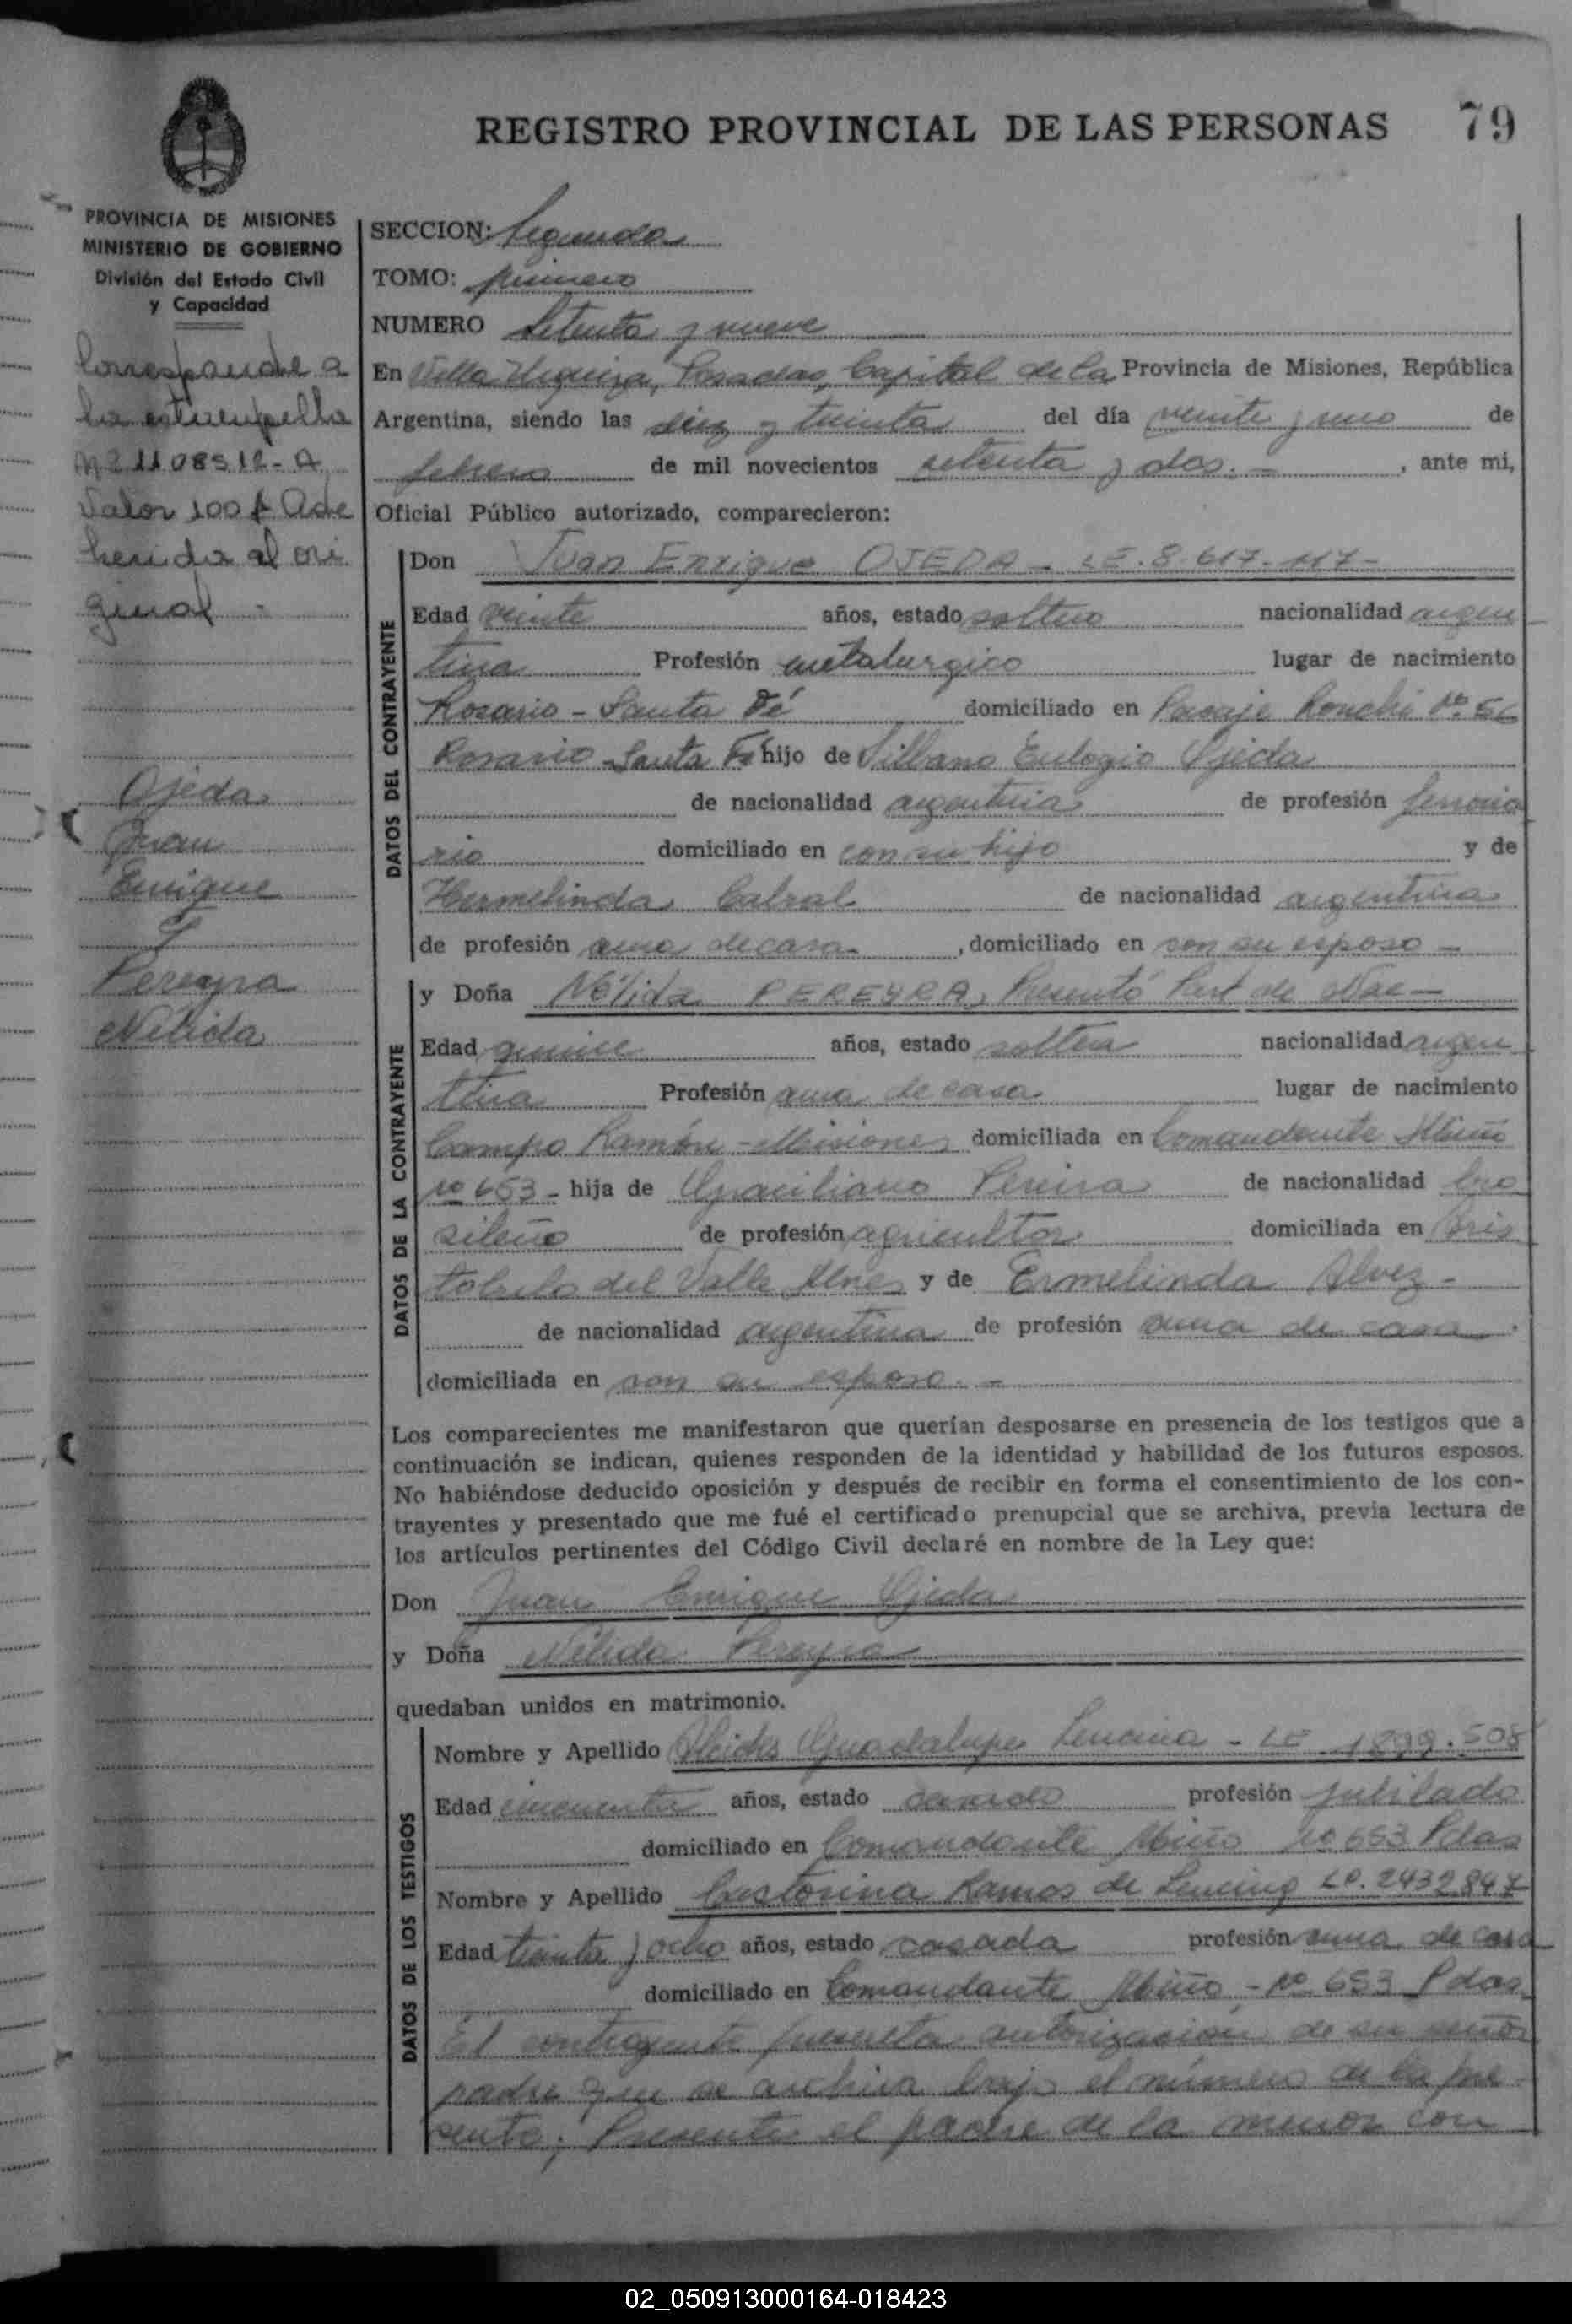 REGISTRO PROVINCIAL DE LAS PERSONAS 79
PROVINCIA DE MISIONES
MINISTERIO DE GOBIERNO
División del Estado Civil
y Capacidad
Corresponde a
la estampilla
Nº 1108512-A
Valor 100 $ Ade
herida al ori
ginal -
Ojeda
Juan
Enrique
y
Pereyra
Nélida
SECCION: Segunda
TOMO: primero
NUMERO Setenta y nueve
En Villa Urquiza, Posadas, Capital de la Provincia de Misiones, República
Argentina, siendo las diez y treinta del día veinte y uno de
febrero de mil novecientos setenta y dos. - , ante mi,
Oficial Público autorizado, comparecieron:
DATOS DEL CONTRAYENTE
Don Juan Enrique OJEDA - LE. 8.617.117-
Edad veinte años, estado soltero nacionalidad argen
tina Profesión metalurgico lugar de nacimiento
Rosario - Santa Fé domiciliado en Pasaje Ronchi Nº 56
Rosario - Santa Fé hijo de Silbano Eulogio Ojeda
de nacionalidad argentina de profesión ferrovia
rio domiciliado en con su hijo y de
Hermelinda Cabral de nacionalidad argentina
de profesión ama de casa. , domiciliado en con su esposo -
DATOS DE LA CONTRAYENTE
y Doña Nélida PEREYRA, Presentó Part de Nac -
Edad quince años, estado soltera nacionalidad argen
tina Profesión ama de casa lugar de nacimiento
Campo Ramón - Misiones domiciliada en Comandante Miño
Nº 653 - hija de Graciliano Pereira de nacionalidad bra
sileño de profesión agricultor domiciliada en Aris
tobulo del Valle Mnes y de Ermelinda Alvez -
de nacionalidad argentina de profesión ama de casa .
domiciliada en con su esposo. -
Los comparecientes me manifestaron que querían desposarse en presencia de los testigos que a
continuación se indican, quienes responden de la identidad y habilidad de los futuros esposos.
No habiéndose deducido oposición y después de recibir en forma el consentimiento de los con-
trayentes y presentado que me fué el certificado prenupcial que se archiva, previa lectura de
los artículos pertinentes del Código Civil declaré en nombre de la Ley que:
Don Juan Enrique Ojeda
y Doña Nélida Pereyra
quedaban unidos en matrimonio.
DATOS DE LOS TESTIGOS
Nombre y Apellido Alcides Guadalupe Lencina - LE 1899.508
Edad cincuenta años, estado casado profesión jubilado
domiciliado en Comandante Miño Nº 653 Pdas
Nombre y Apellido Castorina Ramos de Lencina LC. 2432847
Edad treinta y ocho años, estado casada profesión ama de casa
domiciliado en Comandante Miño - Nº 653 Pdas
El contrayente presenta autorizacion de su señor
padre que se archiva bajo el número de la pre
sente; Presente el padre de la menor con
02_050913000164-018423